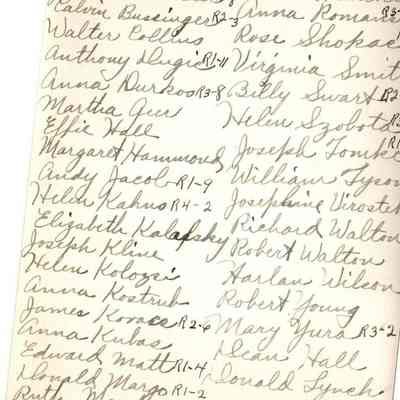 Kalvin Bussinger R2-3
Walter Collins
Anthony Dugie R1-11
Anna Durkos R3-8
Martha Geer
Effie Hall
Margaret Hammond
Andy Jacob R1-9
Helen Kahno R4-2
Elizabeth Kalafsky
Joseph Kline
Helen Kolozsi
Anna Kostrub
James Kovacs R2-6
Anna Kubas
Edward Matt R1-4
Donald Margo R1-2
Ruth
Anna Roman R3-
Rose Shokac
Virginia Smit
Billy Swart R2
Helen Szobota
Joseph Tomke
William Tyson
Josephine Viroste
Richard Walton
Robert Walton
Harlan Wilson
Robert Young
Mary Yura R3-2
Dean Hall
Donald Lynch